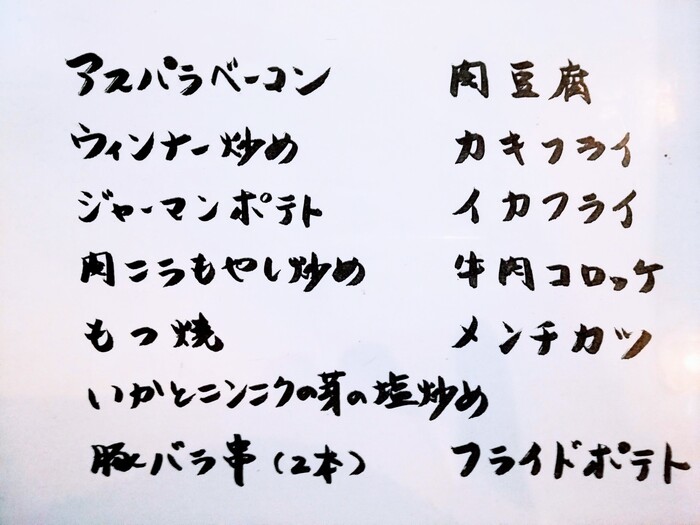 アスパラベーコン
ウィンナー炒め
ジャーマンポテト
肉ニラもやし炒め
もつ焼
いかとニンニクの芽の塩炒め
豚バラ串(2本)
肉豆腐
カキフライ
イカフライ
牛肉コロッケ
メンチカツ
フライドポテト